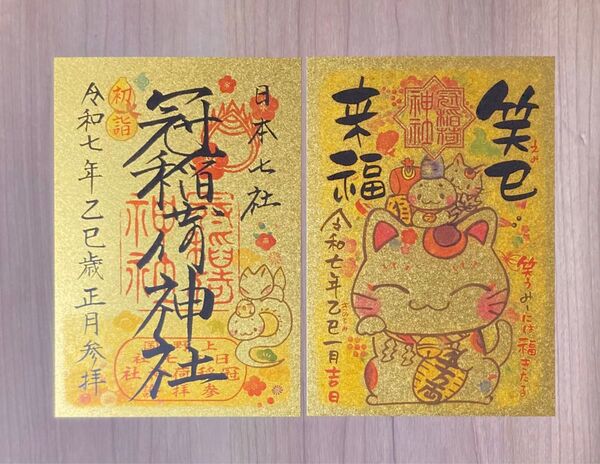 日本七社
冠稲荷神社
初詣
令和七年乙巳歳正月参拝
冠稲荷
神社
笑巳
えみ
来福
冠稲荷
神社
笑うみーには福きたる
令和七年乙巳一月吉日
きのとみ